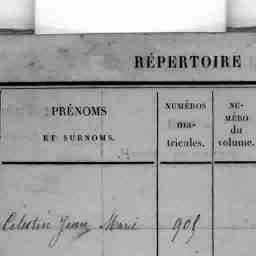 RÉPERTOIRE
PRÉNOMS
ET SURNOMS.
NUMÉROS
ma-
tricules.
NU-
MÉRO
du
volume.
Celestin Jean Marie 905